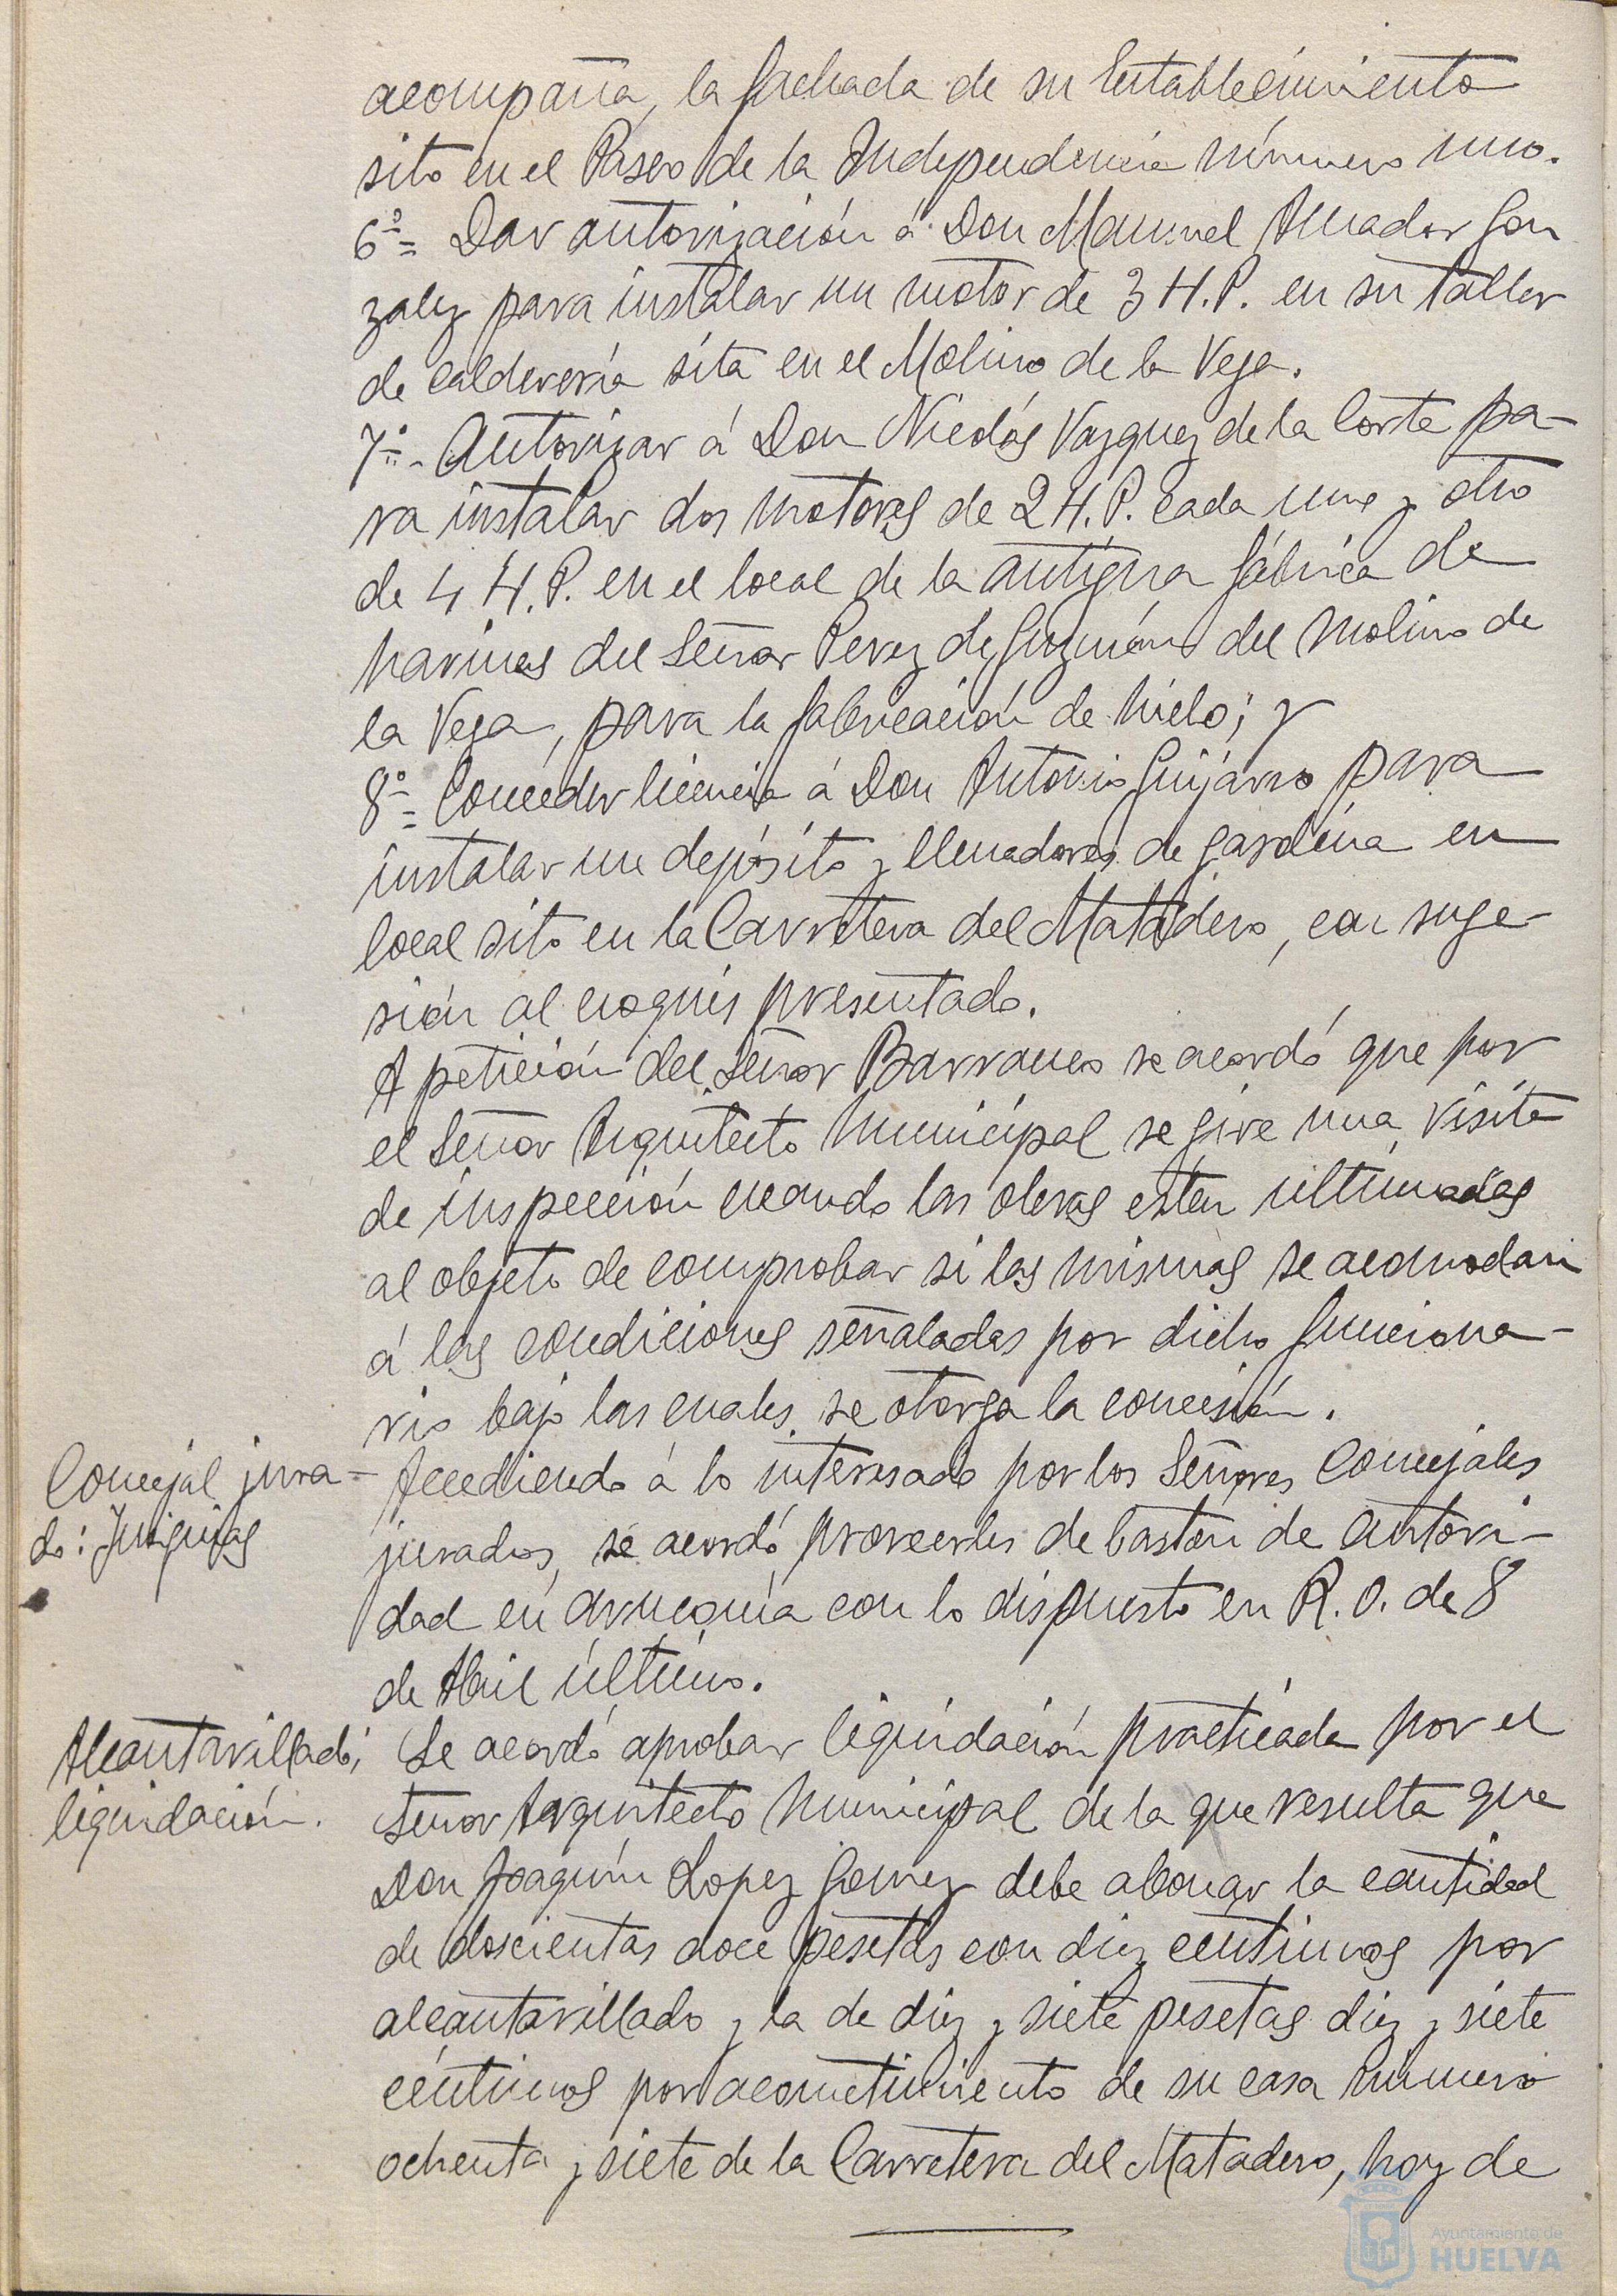 acompaña, la fachada de su Establecimiento
sito en el Paseo de la Independencia número uno.
6º = Dar autorización á Don Manuel Amador Gon
zalez para instalar un motor de 3 H.P. en su taller
de calderería sita en el Molino de la Vega.
7º - Autorizar á Don Nicolás Vazquez de la Corte pa-
ra instalar dos motores de 2 H.P. cada uno y otro
de 4 H.P. en el local de la antigua fábrica de
harinas del Señor Perez de Guzmán del Molino de
la Vega, para la fabricación de hielo; y
8º = Conceder licencia á Don Antonio Guijarro para
instalar un depósito y llenadores de gasolina en
local sito en la Carretera del Matadero, con suge-
sión al croquis presentado.
A petición del Señor Barranco se acordó que por
el Señor Arquitecto Municipal se gire una visita
de inspección cuando las obras estén ultimadas
al objeto de comprobar si las mismas se acomodan
á las condiciones señaladas por dicho funciona-
rio bajo las cuales se otorga la concesión.
Concejal jura-
do: Insignias
Accediendo á lo interesado por los Señores Concejales
jurados, se acordó proveerles de baston de autori-
dad en armonía con lo dispuesto en R.O. de 8
de Abril último.
Alcantarillado;
liquidación.
Se acordó aprobar liquidación practicada por el
Señor Arquitecto Municipal de la que resulta que
Don Joaquín Lopez Gomez debe abonar la cantidad
de doscientas doce pesetas con diez centimos por
alcantarillado y la de diez y siete pesetas diez y siete
céntimos por acometimiento de su casa número
ochenta y siete de la Carretera del Matadero, hoy de
Ayuntamiento de
HUELVA